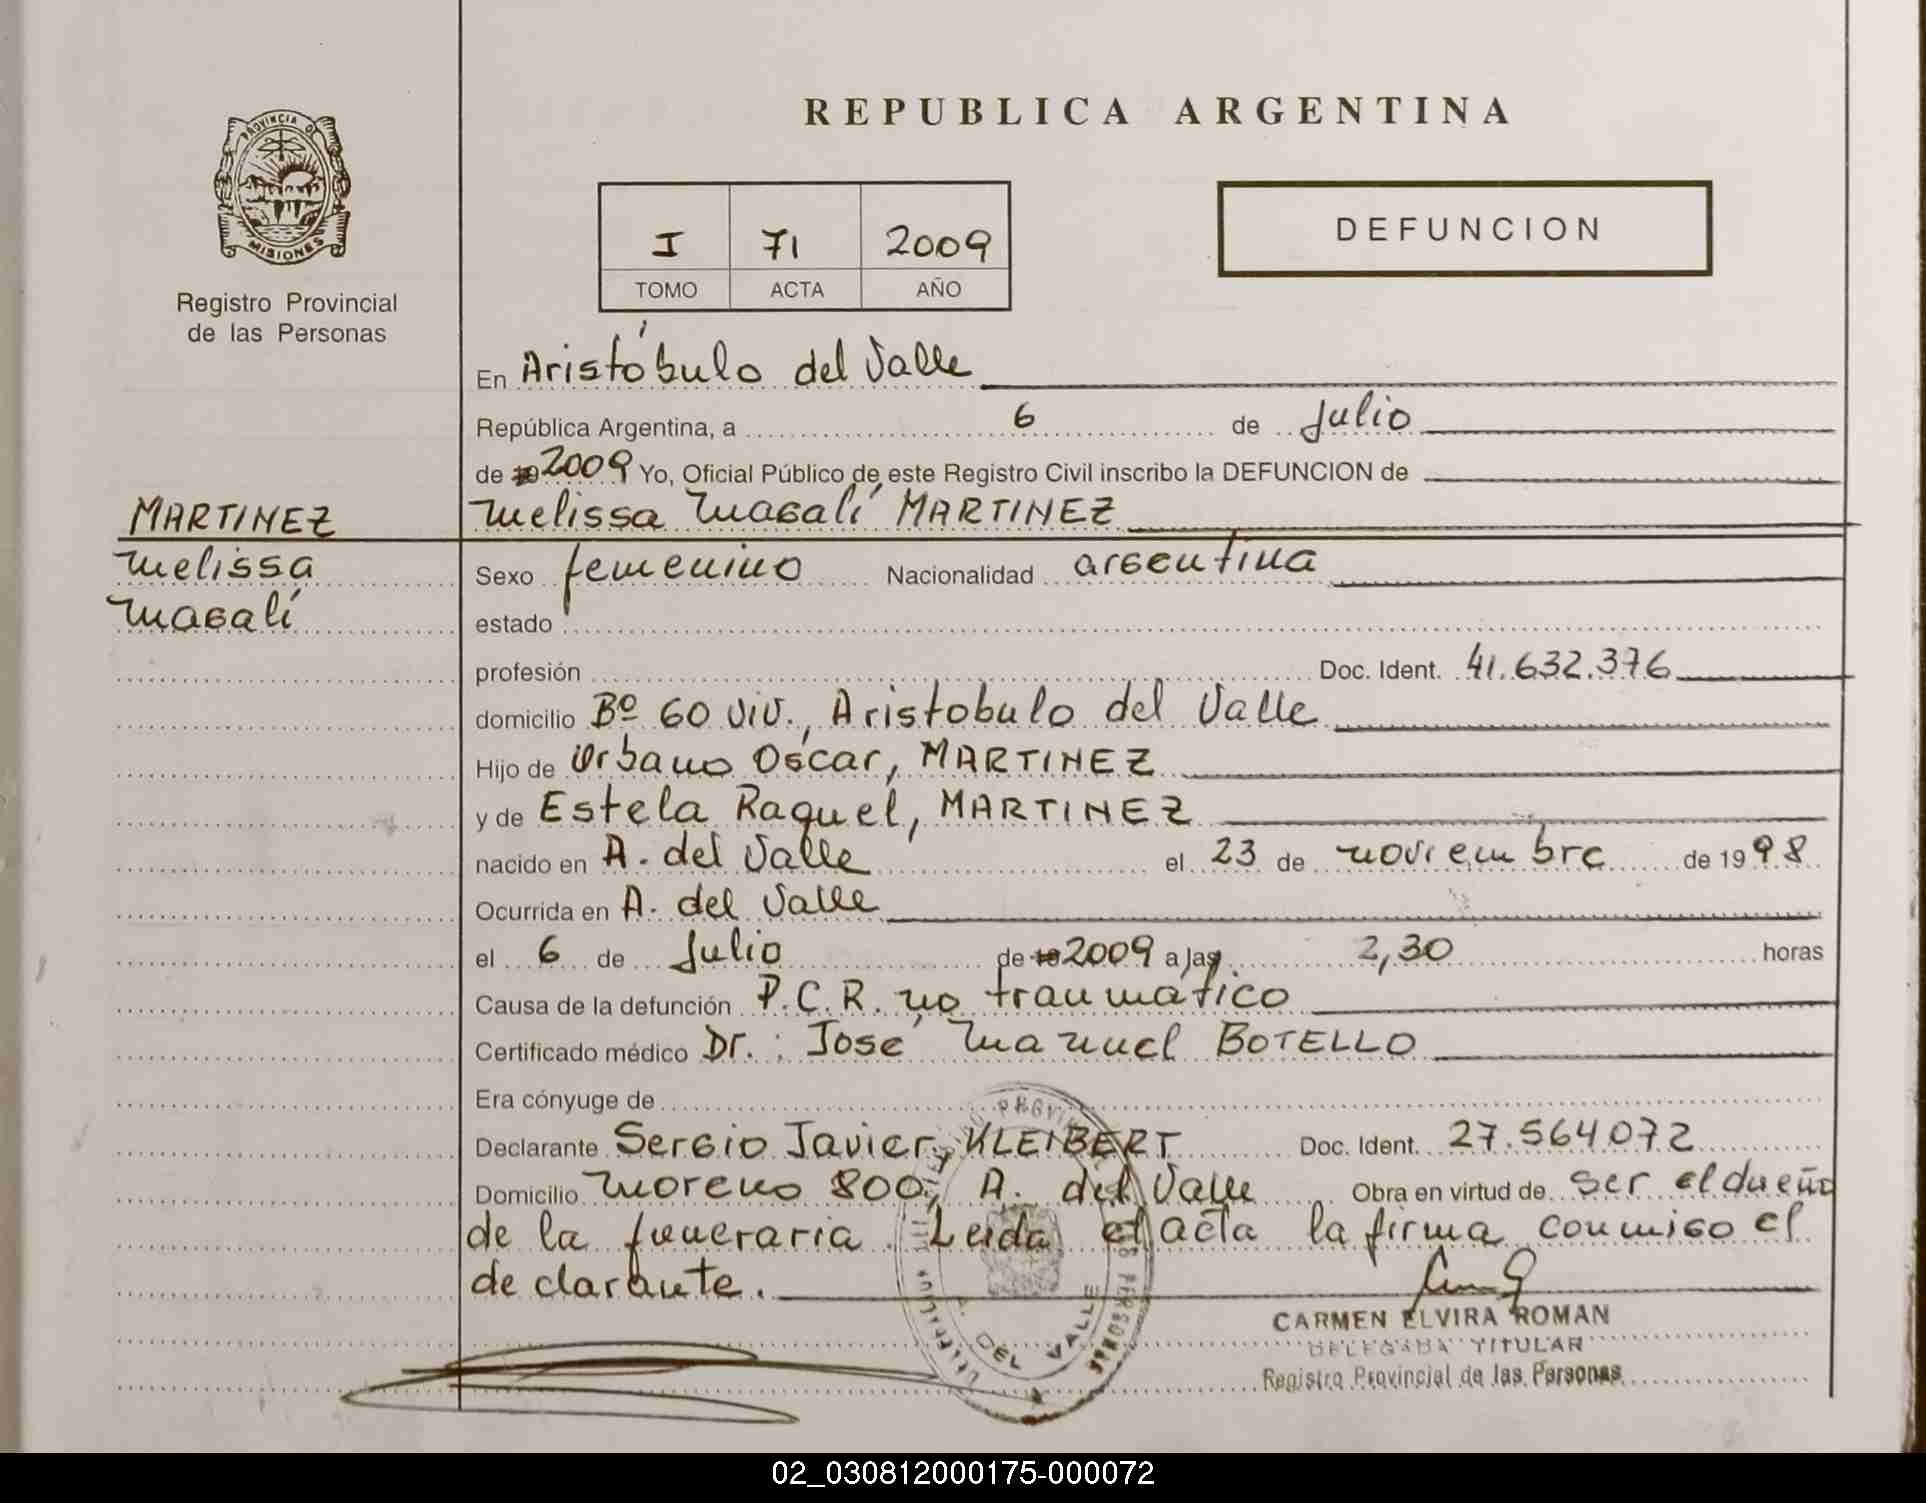 PROVINCIA DE
MISIONES
Registro Provincial
de las Personas
REPUBLICA ARGENTINA
I 71 2009
TOMO ACTA AÑO
DEFUNCION
En Aristóbulo del Valle
República Argentina, a 6 de Julio
de 19 2009 Yo, Oficial Público de este Registro Civil inscribo la DEFUNCION de
MARTINEZ
Melissa
Magalí
Melissa Magalí MARTINEZ
Sexo femenino Nacionalidad argentina
estado
profesión Doc. Ident. 41.632.376
domicilio Bº 60 viv., Aristobulo del Valle
Hijo de Urbano Oscar, MARTINEZ
y de Estela Raquel, MARTINEZ
nacido en A. del Valle el 23 de noviembre de 1998
Ocurrida en A. del Valle
el 6 de Julio de 19 2009 a las 2,30 horas
Causa de la defunción P.C.R. no traumático
Certificado médico Dr.: José Manuel BOTELLO
Era cónyuge de
Declarante Sergio Javier, KLEIBERT Doc. Ident. 27.564.072
Domicilio Moreno 800, A. del Valle Obra en virtud de ser el dueño
de la funeraria. Leida el acta la firma conmigo el
declarante.
A. DEL VALLE
CARMEN ELVIRA ROMAN
DELEGADA TITULAR
Registro Provincial de las Personas
02_030812000175-000072